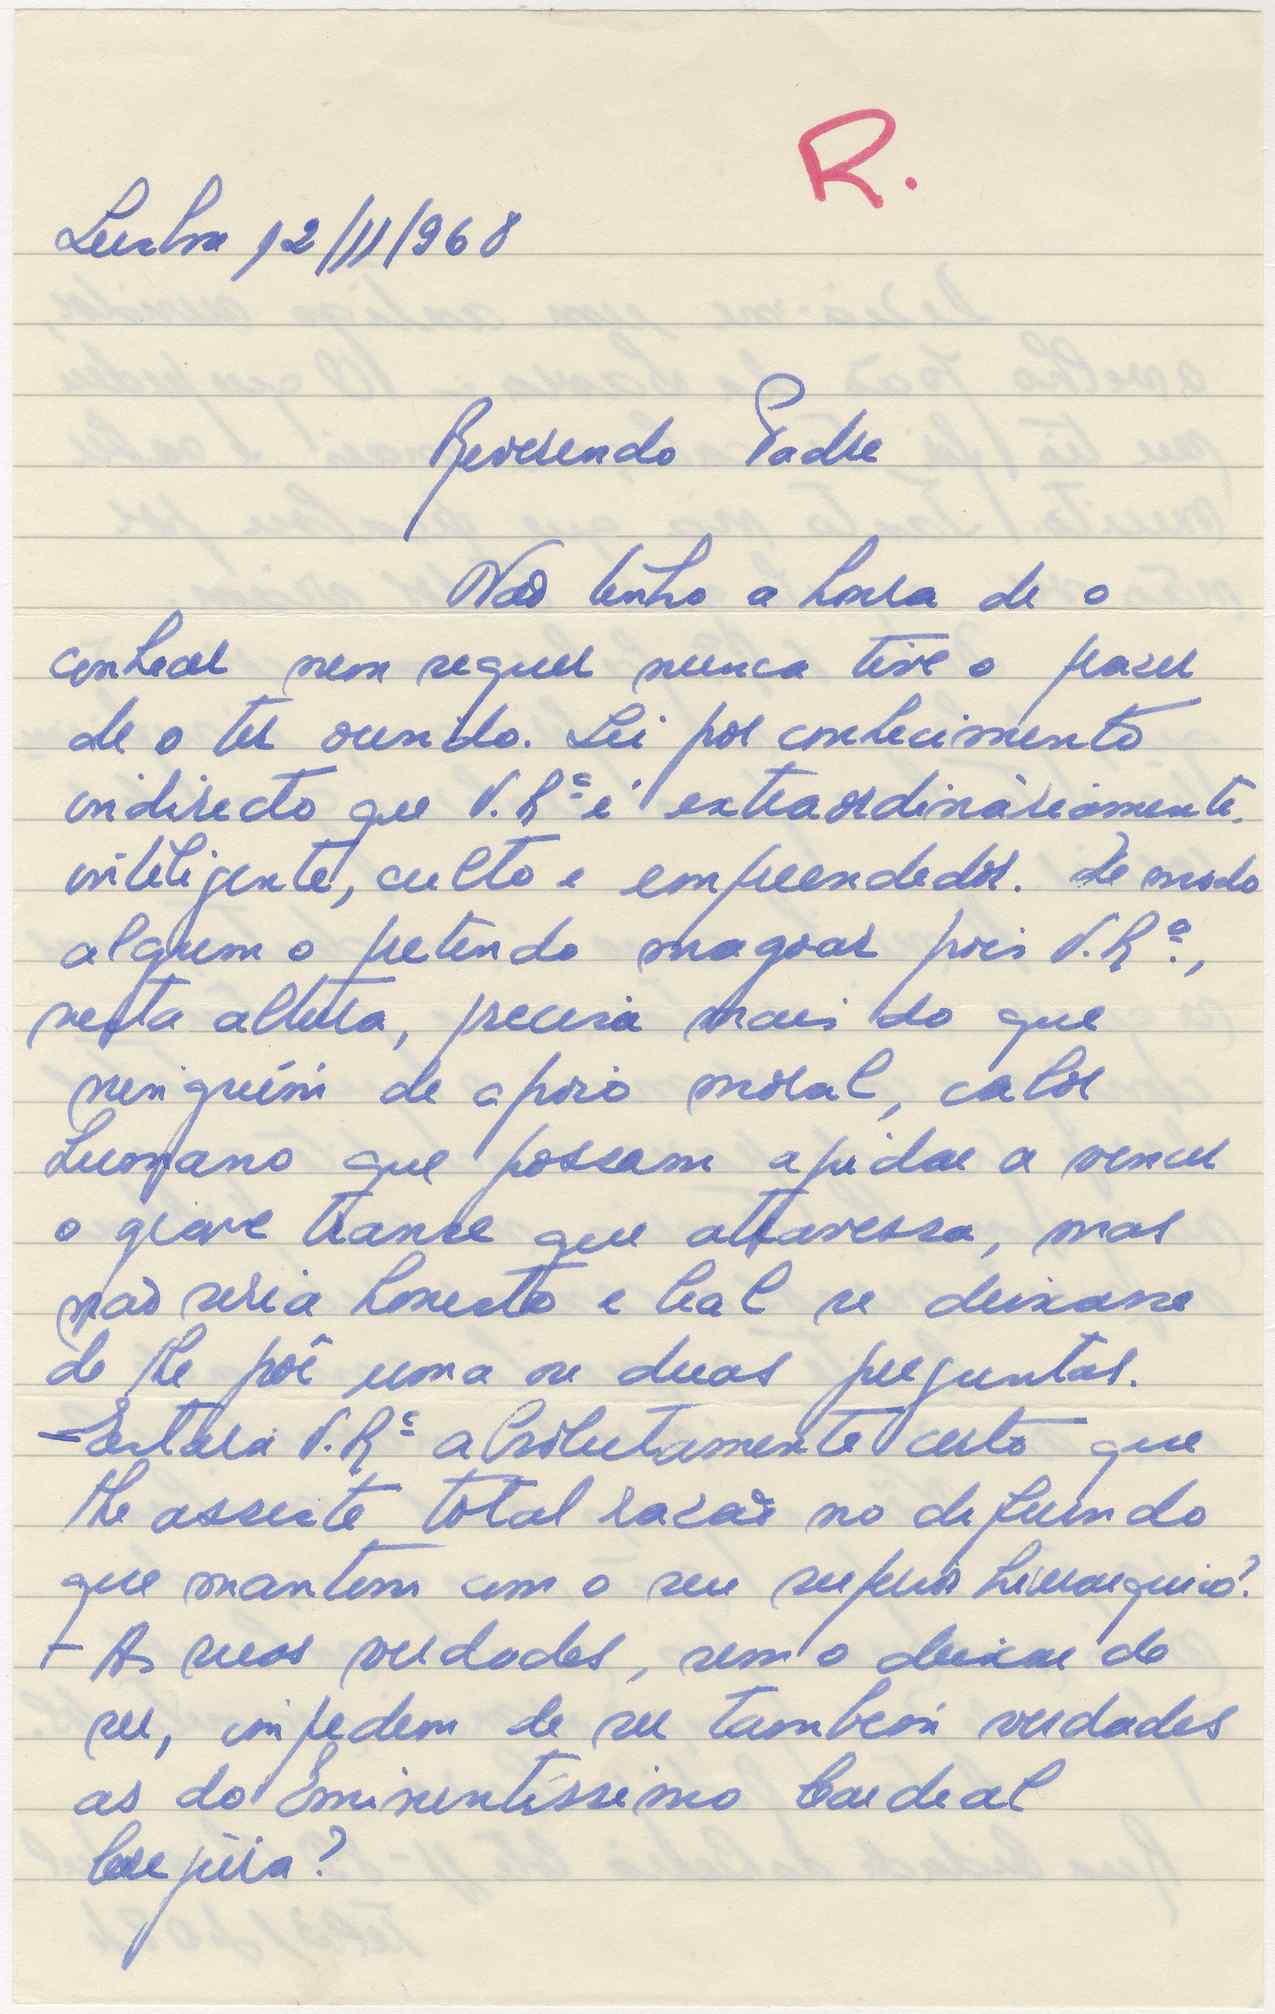 R.
Lisboa 12/11/968
Reverendo Padre
Não tenho a honra de o
conhecer nem sequer nunca tive o prazer
de o ter ouvido. Sei por conhecimento
indirecto que V. Rª é extraordinàriamente
inteligente, culto e empreendedor. De modo
algum o pretendo magoar pois V. Rª,
nesta altura, precisa mais do que
ninguém de apoio moral, calor
humano que possam ajudar a vencer
o grave transe que atravessa, mas
não seria honesto e leal se deixasse
de lhe pôr uma ou duas perguntas.
- Estará V. Rª absolutamente certo que
lhe assiste total razão no diferendo
que mantem com o seu superior hierarquico?
- As suas verdades, sem o deixar de
ser, impedem de ser também verdades
as do Eminentíssimo Cardeal
Cerejeira?